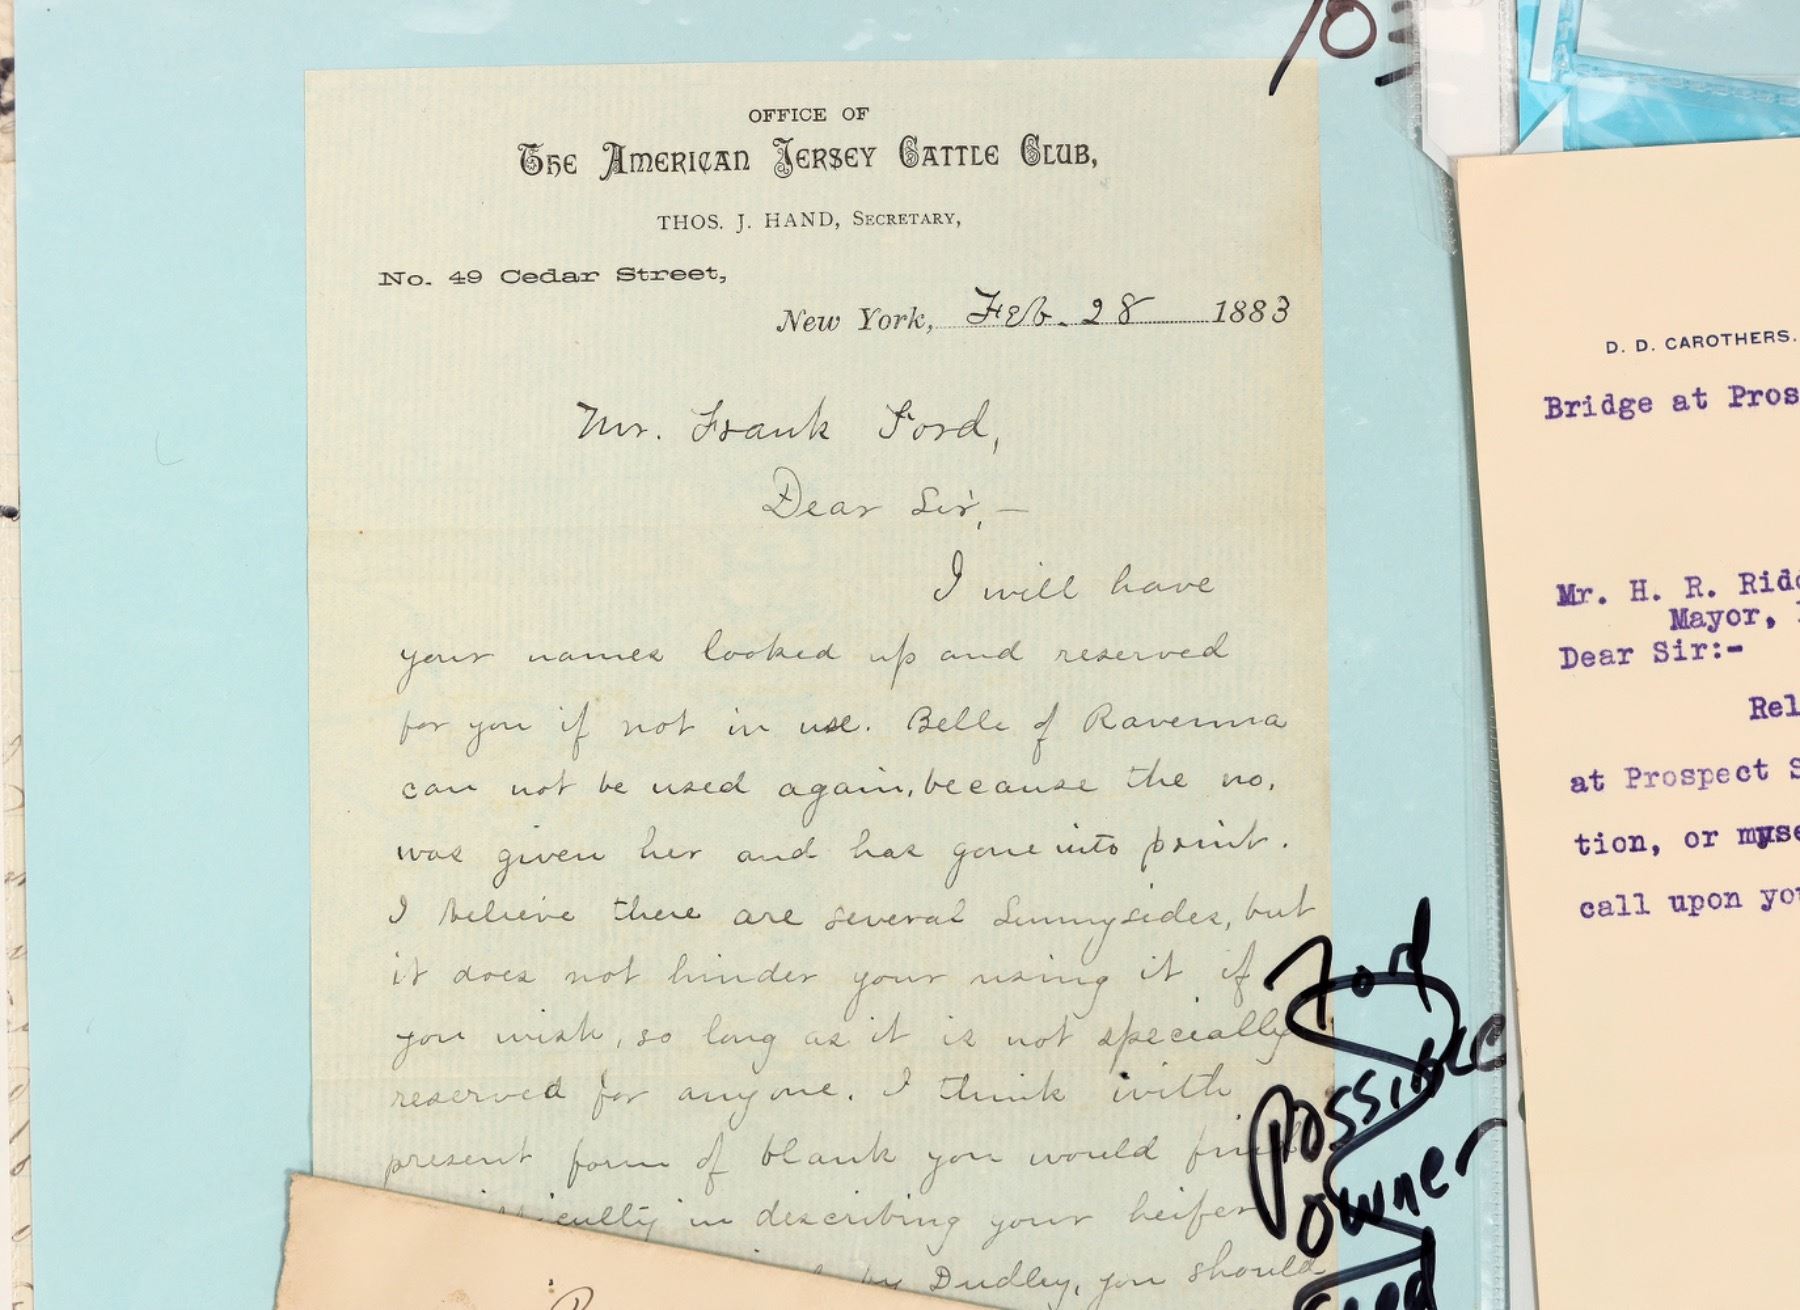 OFFICE OF
The American Jersey Cattle Club,
THOS. J. HAND, Secretary,
No. 49 Cedar Street,
New York, Feb. 28 1883
Mr. Frank Ford,
Dear Sir,—
I will have
your names looked up and reserved
for you if not in use. Belle of Ravenna
can not be used again, because the no.
was given her and has gone into print.
I believe there are several Sunnysides, but
it does not hinder your using it if
you wish, so long as it is not specially
reserved for anyone. I think with
present form of blank you would find
in describing your heifer
by Dudley, you should
Ford
Possible
owner
D. D. CAROTHERS.
Bridge at Pros
Mr. H. R. Ridd
Mayor,
Dear Sir:-
Rel
at Prospect S
tion, or myse
call upon you